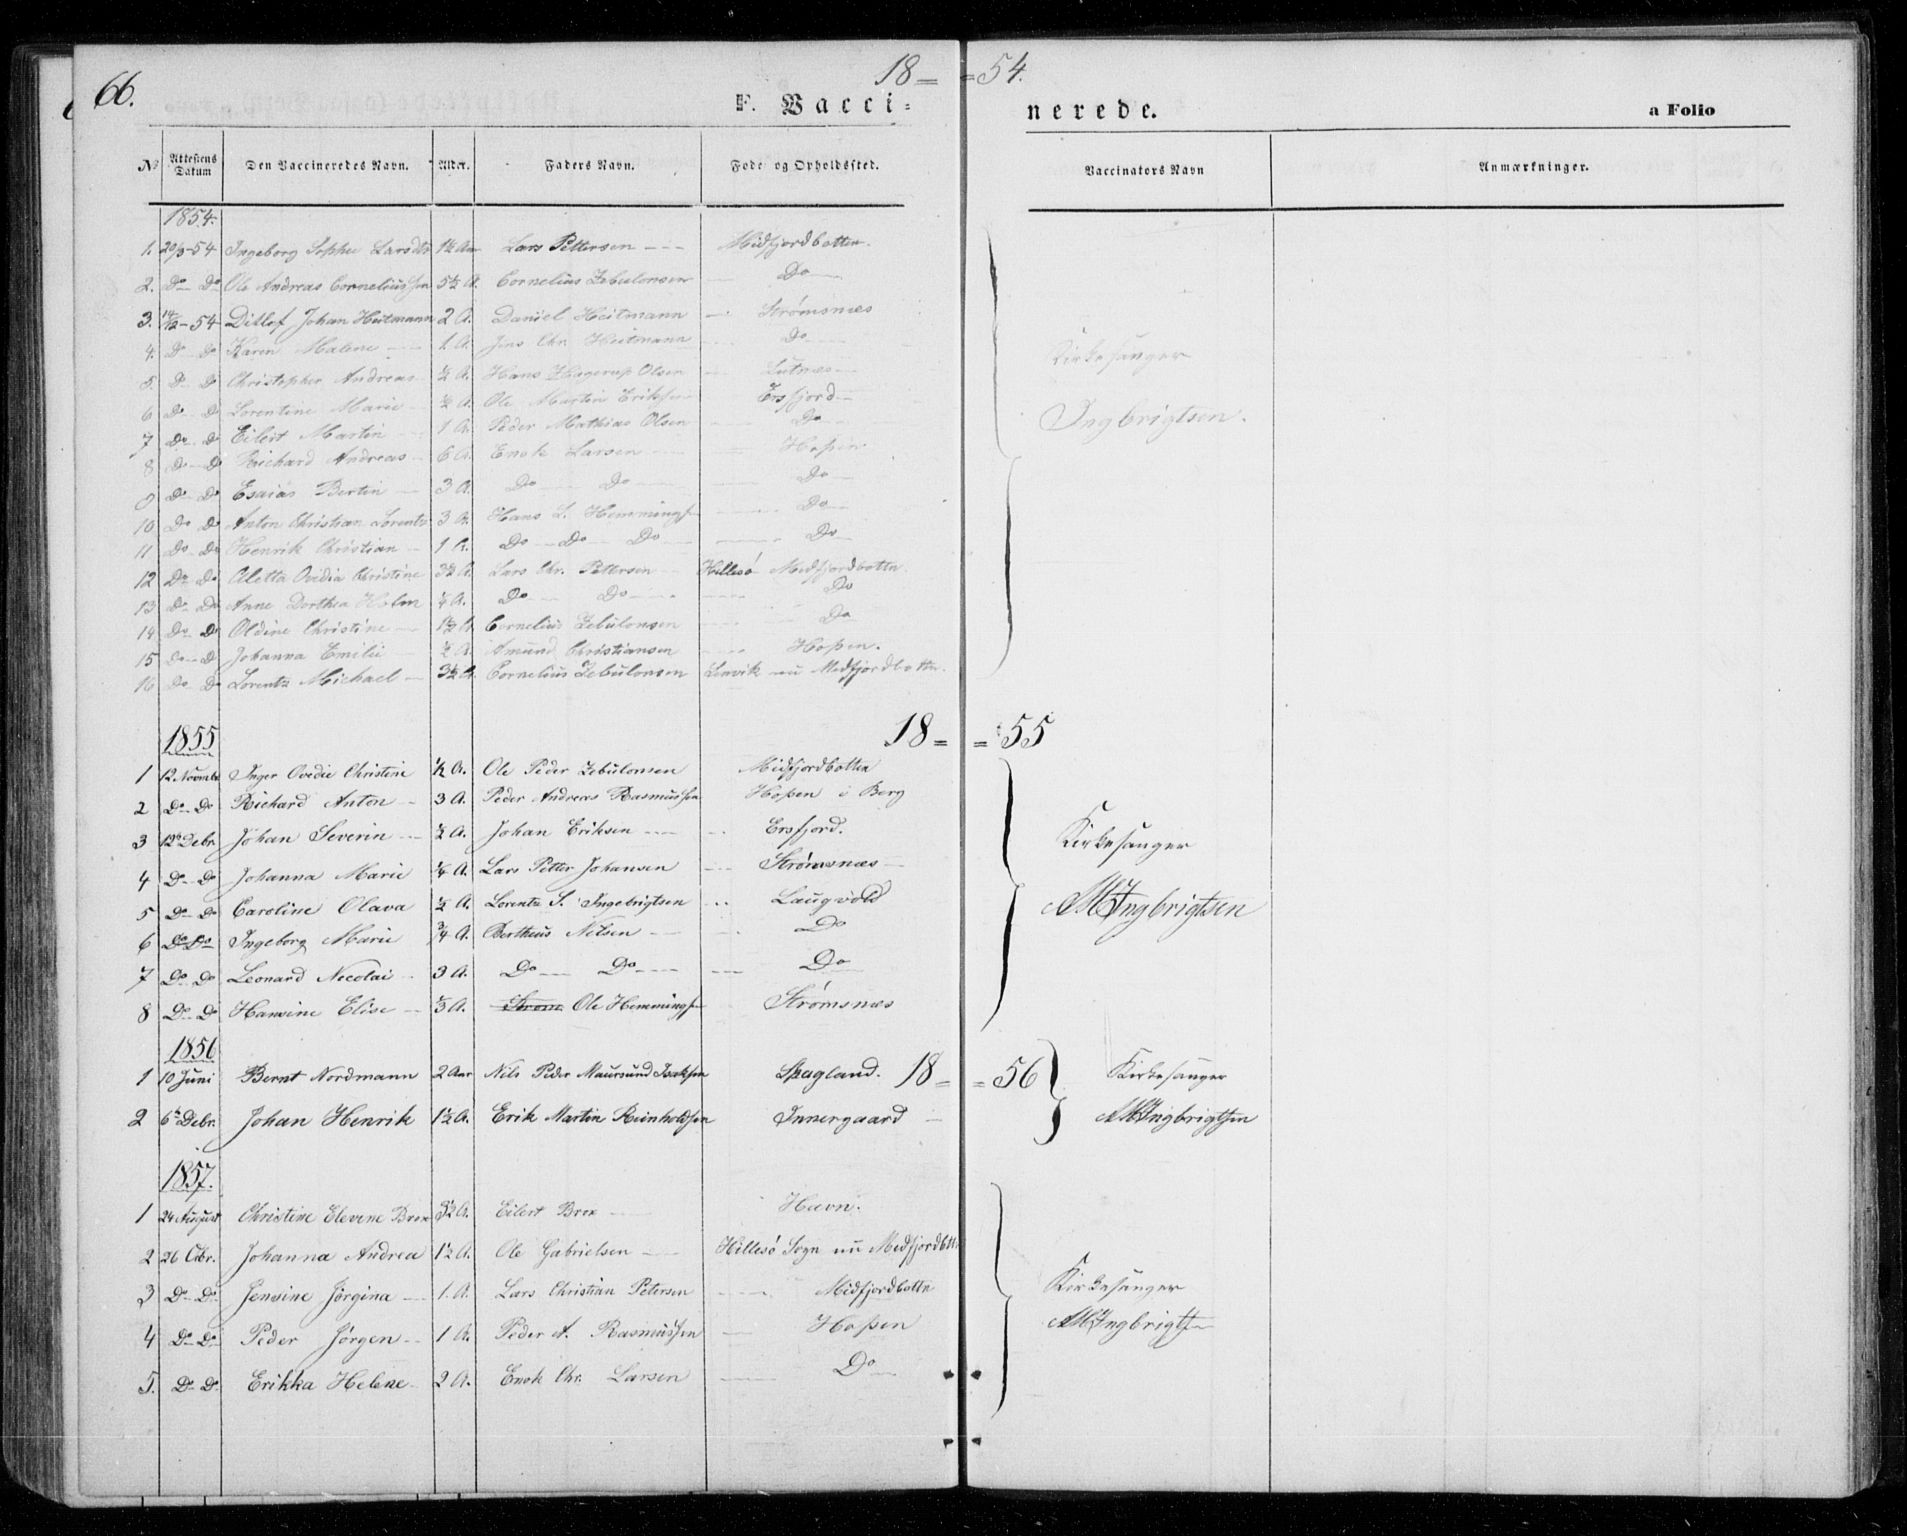 66.
18 = = 54.
F. Vacci= nerede. a Folio
No Attestens Datum Den Vaccineredes Navn. Alder. Faders Navn. Føde og Opholdssted. Vaccinators Navn Anmærkninger.
1854.
1. 20/3-54 Ingeborg Sophie Larsdtr 1½ Aar Lars Pettersen Midfjordbotten.
2. Do Do Ole Andreas Corneliussen 5½ A. Cornelius Zebulonsen Do
3. 14/12-54 Ditlof Johan Heitmann 2 A. Daniel Heitmann Strømsnæs
4. Do Do Karen Malene 1. A. Jens Chr. Heitmann Do
5. Do Do Christopher Andreas ½ A. Hans Hagerup Olsen Lutnæs
6 Do Do Lorentine Marie ½ A. Ole Martin Eriksen Ersfjord
7 Do Do Eilert Martin 1 A. Peder Mathias Olsen Do
8 Do Do Richard Andreas 6 A. Enok Larsen Hopen
9 Do Do Esaias Bertin 3 A. Do Do Do
10 Do Do Anton Christian Lorentz 3 A. Hans L. Hemmingsen Do
11 Do Do Henrik Christian 1 A. Do Do Do Do
12 Do Do Aletta Ovidia Christine 3½ A. Lars Chr. Pettersen Hillesø Medfjordbottn.
13 Do Do Anne Dorthea Holm ¼ A. Do Do Do
14 Do Do Oldine Christine 1½ A. Cornelius Zebulonsen Do
15 Do Do Johanna Emilie ½ A. Amund Christiansen Hopen.
16 Do Do Lorentz Michael 3½ A. Cornelius Zebulonsen Lenvik nu Medfjordbottn.
Kirkesanger
Ingbrigtsen.
1855 18 = = 55
1 12 Novmbr Inger Ovedie Christine ½ A. Ole Peder Zebulonsen Midfjordbotten
2 Do Do Richard Anton 3 A. Peder Andreas Rasmussen Hopen i Berg
3 12te Debr. Johan Severin ½ A. Johan Eriksen Ersfjord.
4 Do Do Johanna Marie ¼ A. Lars Petter Johansen Strømsnæs
5 Do Do Caroline Olava ½ A. Lorentz S. Ingebrigtsen Laugvold
6 Do Do Ingeborg Marie ¾ A. Bertheus Nilsen Do
7 Do Do Leonard Necolai 3 A. Do Do Do
8 Do Do Hansine Elise A. Strøm Ole Hemmingsen Strømsnæs
Kirkesanger
M Ingbrigtsen
1856
1 10 Juni Bernt Nordmann 2 Aar Nils Peder Maursund Isaksen Skagland. 18 = = 56 Kirkesanger
2 6te Debr. Johan Henrik 1½ A. Erik Martin Reinholdsen Innergaard M Ingbrigtsen
1857.
1 24 August Christine Elevine Brox 3½ A. Eilert Brox Havn.
2 26 Octbr. Johanna Andrea 1½ A. Ole Gabrielsen Hillesø Sogn nu Medfjordbttn
3 Do Do Jensine Jørgina 1. A. Lars Christian Petersen Midfjordbottn
4 Do Do Peder Jørgen 1 A. Peder A. Rasmussen Hopen
5. Do Do Erikka Helene 2 A. Enok Chr. Larsen Do
Kirkesanger
M Ingbrigtsen